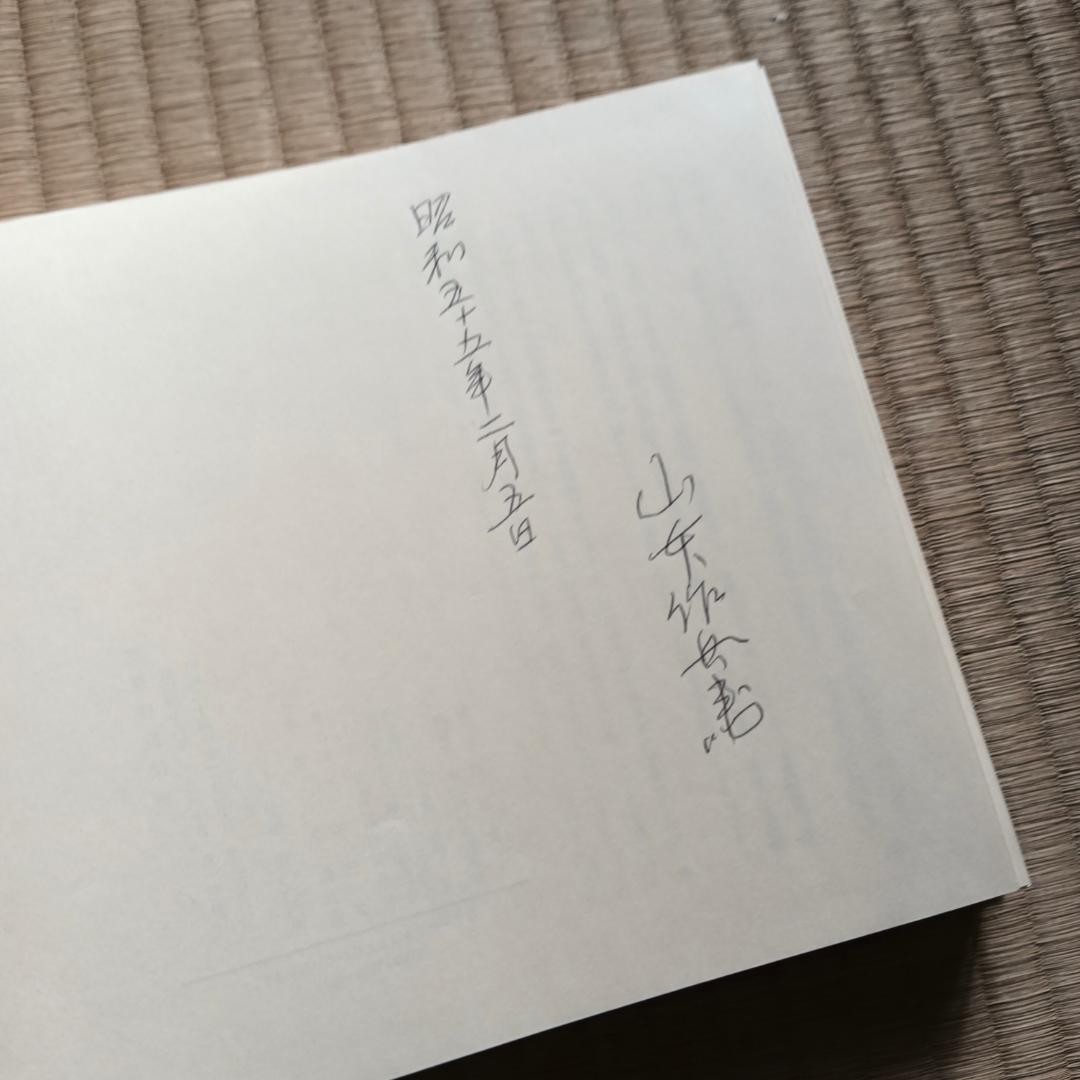 山本作兵衛
昭和五十五年二月五日